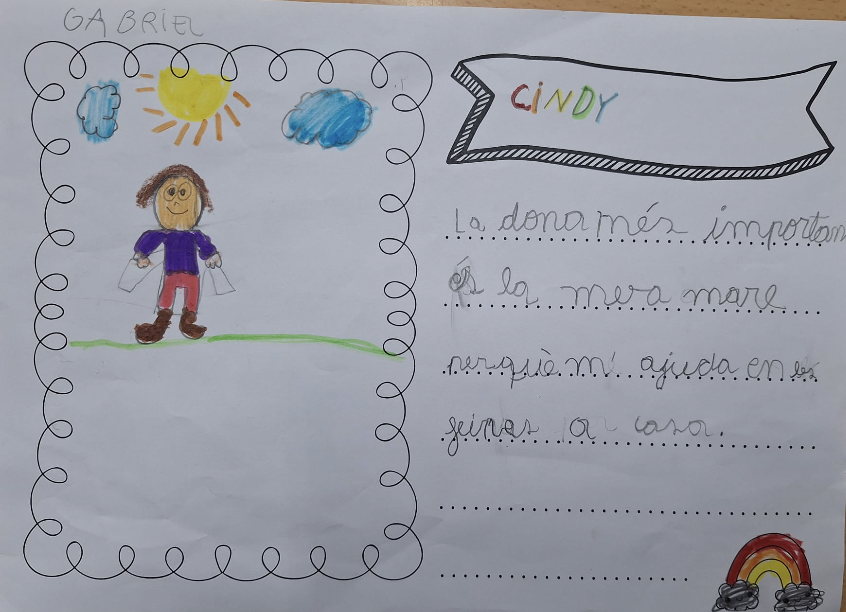 GABRIEL
CINDY
La dona més importan
és la meva mare
perquè m' ajuda en les
feines a casa.